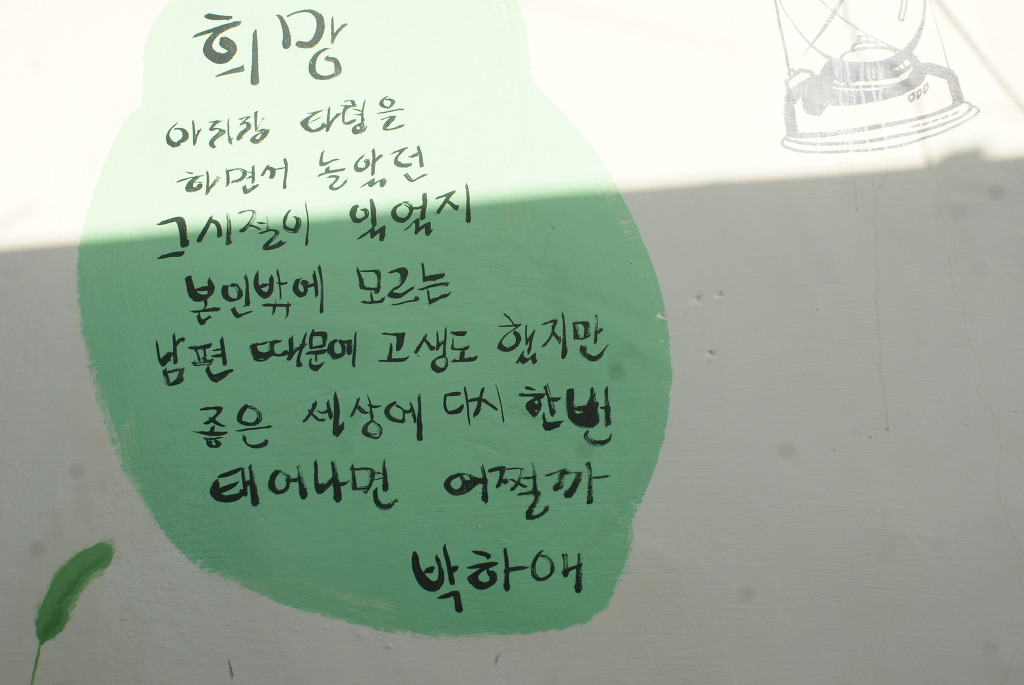 희망
아리랑 타령을
하면서 놀았던
그시절이 있었지
본인밖에 모르는
남편 때문에 고생도 했지만
좋은 세상에 다시 한번
태어나면 어쩔까
박하애